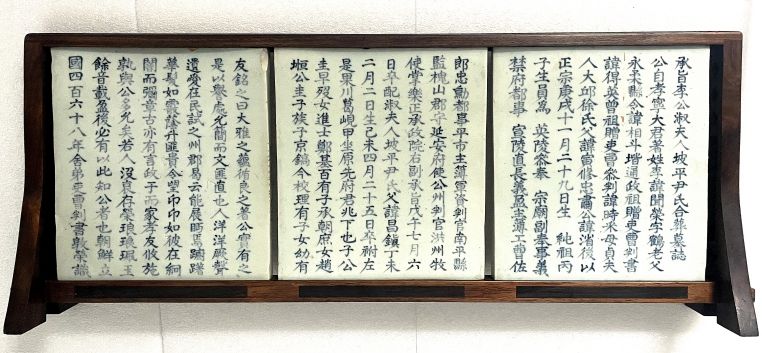 承旨李公淑夫人坡平尹氏合葬墓誌
公自孝寧大君著姓李諱聞榮字鶴老父
永柔縣令諱相斗增通政祖贈吏曹判書
諱得英曾祖贈吏曹參判諱時采母貞夫
人大邱徐氏父諱當修忠肅公諱渻後以
正宗庚戌十一月二十九日生 純祖丙
子生員爲 英陵參奉 宗廟副奉事義
禁府都事 宣陵直長義盈主簿工曹佐
郎忠勳都事平市主簿軍資判官南平縣
監槐山郡守延安府使公州判官洪州牧
使掌樂正承政院右副承旨戊午七月六
日卒配淑夫人坡平尹氏父諱昌鎮丁未
二月二日生己未四月二十五日卒祔左
是果川葛峴甲坐原先府君兆下也子公
圭早歿女進士鄭基百有子承朝庶女趙
恒公圭子族子京鎬今校理有子女幼有
友銘之曰大雅之藏循良之著公實有之
是以譽處允簡而文匪直也人洋洋厥聲
遺愛在民試之州郡易云能展晞馬躕躇
華髮如雲蔭升匪貴令望卬卬如彼在絅
闇而彌章古亦有言政于而家孝友攸施
孰與公多允矣若人沒良存榮琅琅珮玉
餘音載盈後必有以此知公者也朝鮮立
國四百六十八年舍弟吏曹判書敦榮識